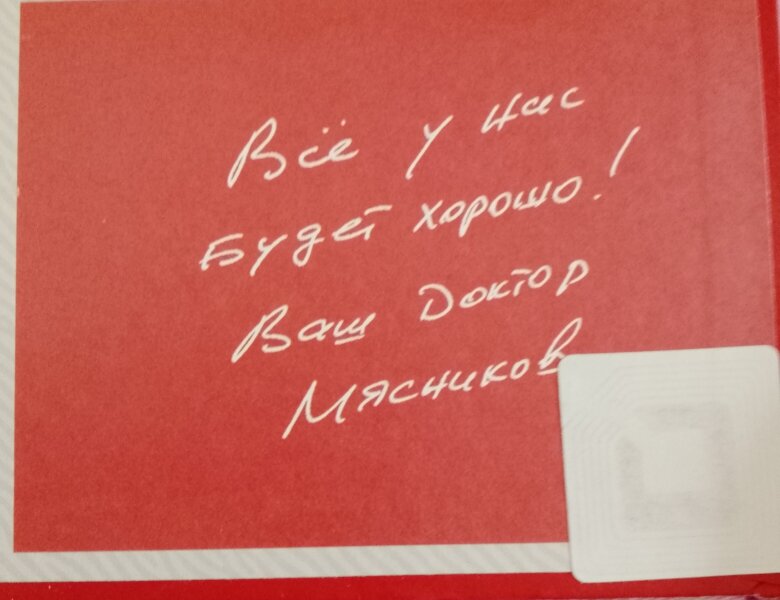 Всё у нас
Будет хорошо!
Ваш Доктор
Мясников